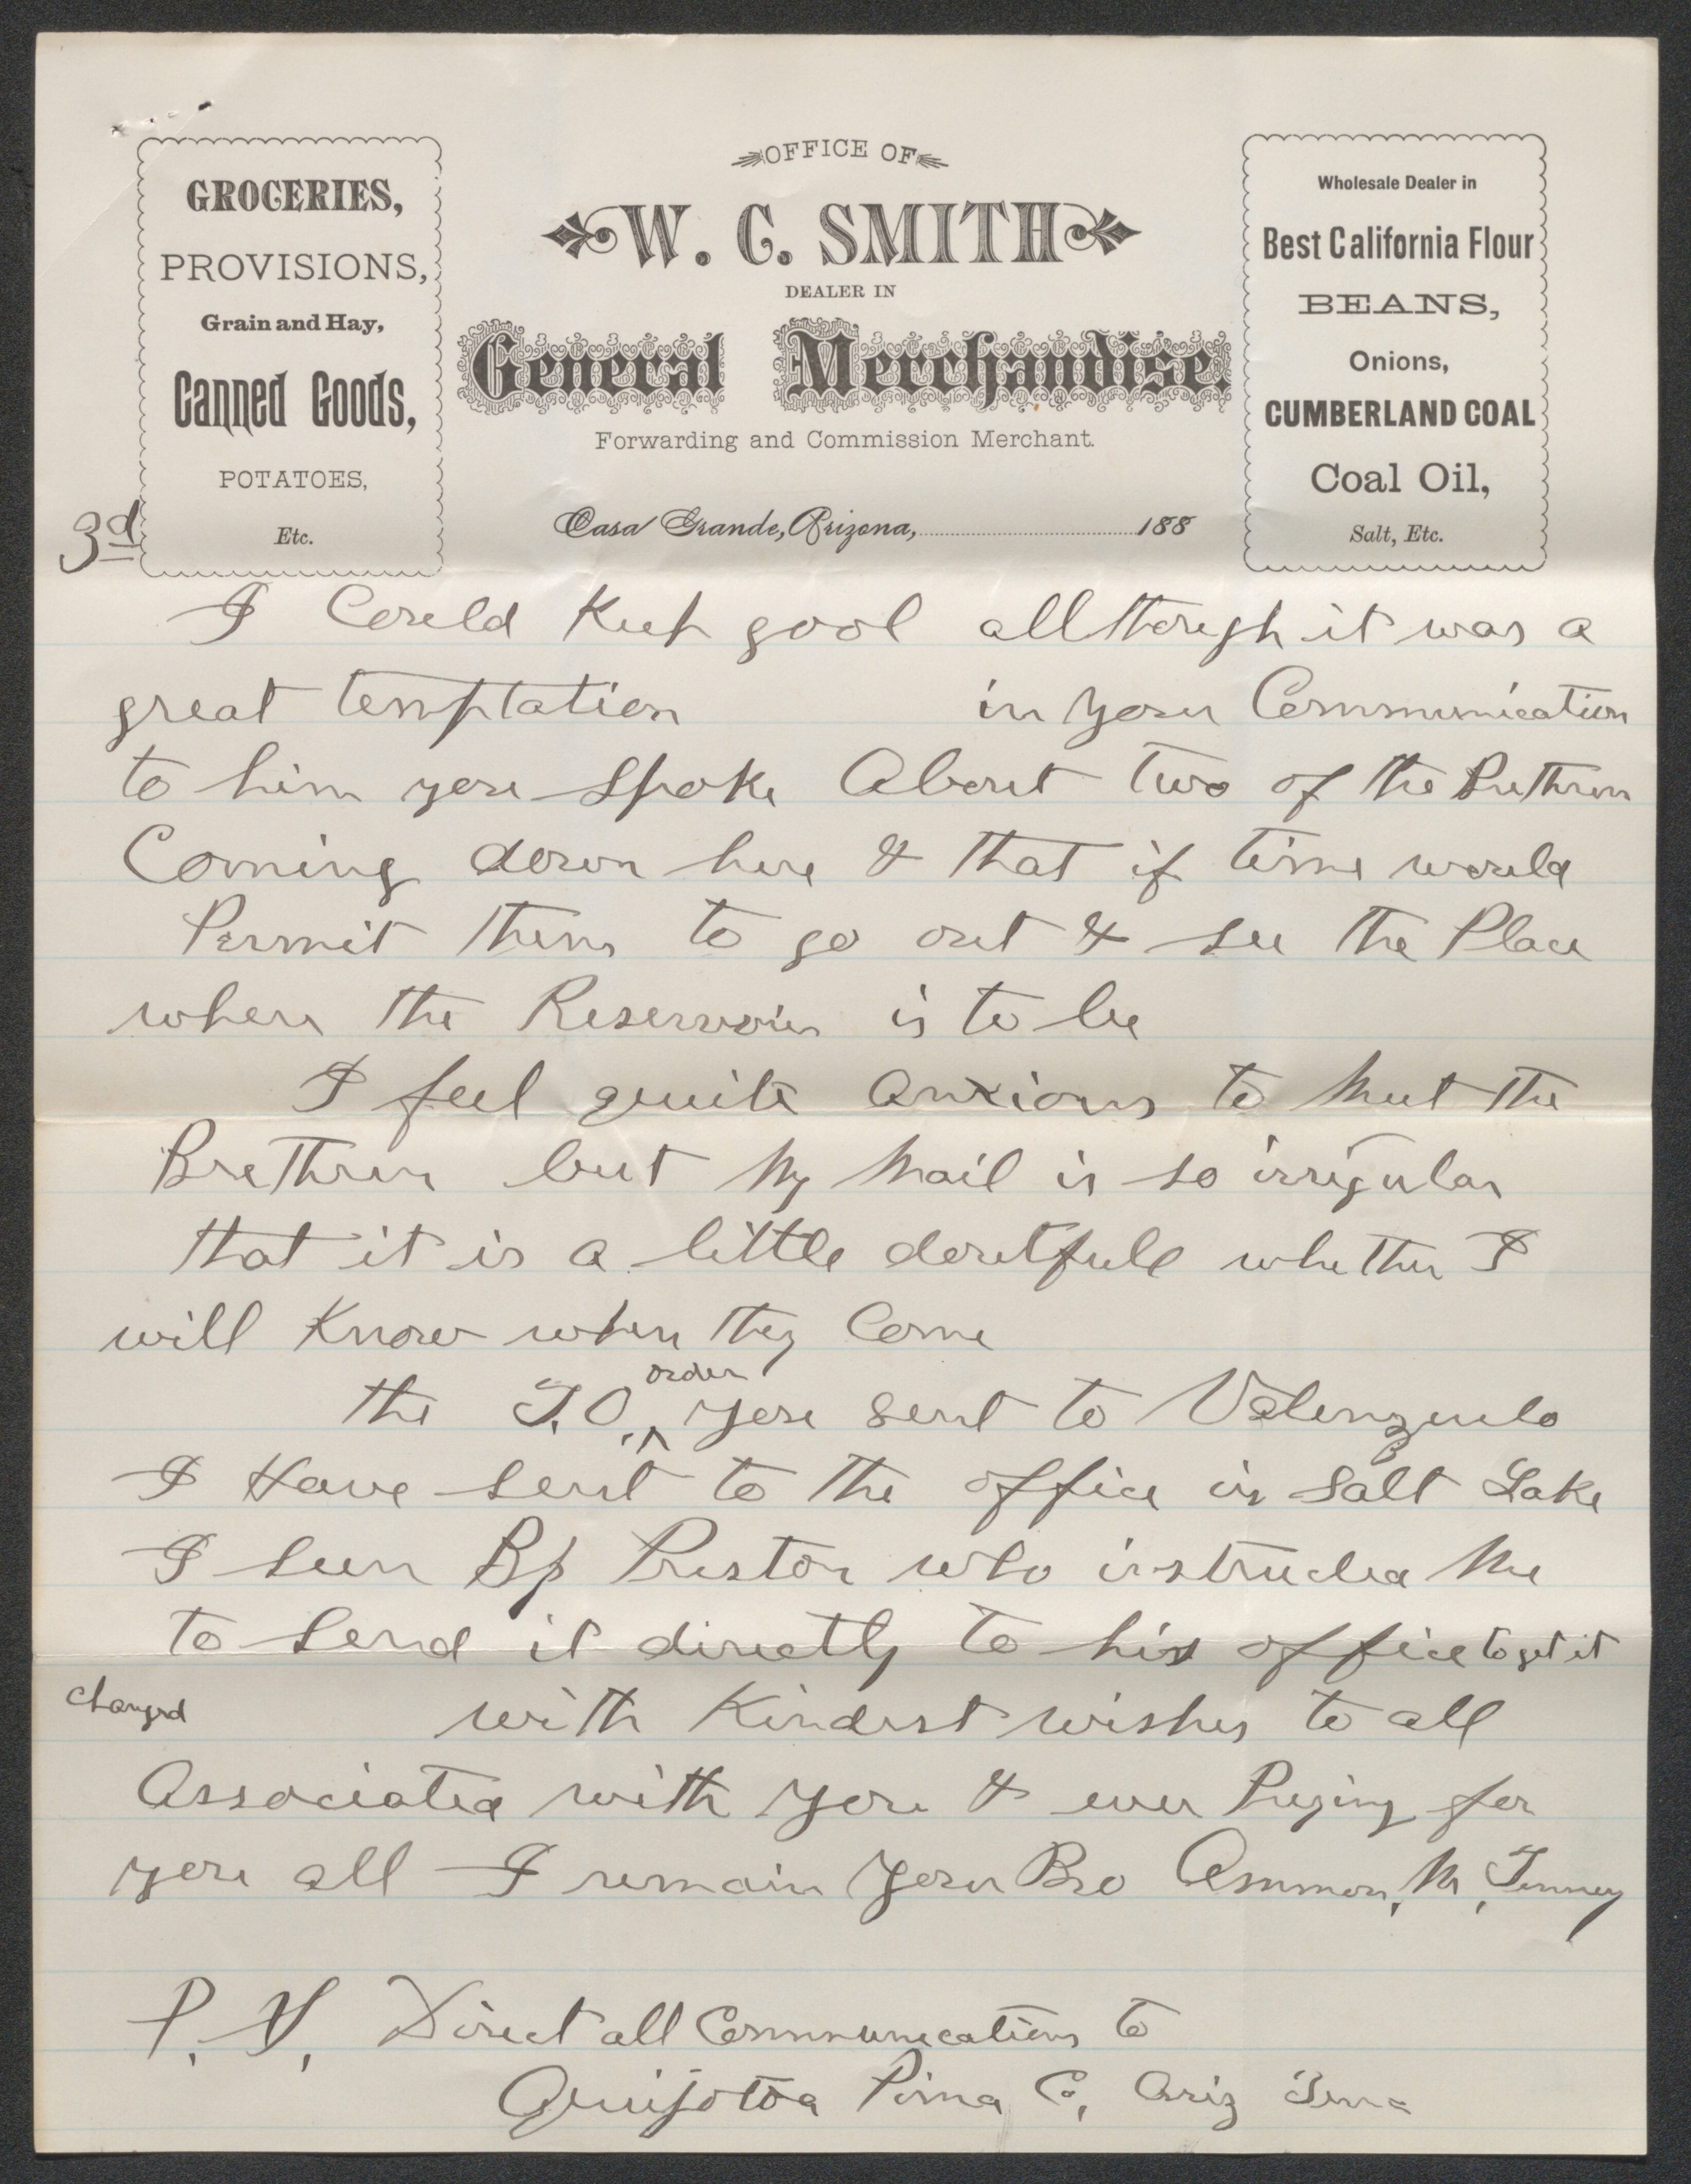 GROCERIES,
PROVISIONS,
Grain and Hay,
Canned Goods,
POTATOES,
Etc.
OFFICE OF
W. C. SMITH
DEALER IN
General Merchandise.
Forwarding and Commission Merchant.
Casa Grande, Arizona, 188
Wholesale Dealer in
Best California Flour
BEANS,
Onions,
CUMBERLAND COAL
Coal Oil,
Salt, Etc.
3d
I Could Keep gool allthough it was a
great temptation in your Communication
to him you spoke About two of the Brethren
Coming down here & that if time would
Permit them to go out & see the Place
where the Reservoir is to be
I feel quite anxious to meet the
Brethren but my mail is so irregular
that it is a little doutfull whether I
will Know when they Come
order
the T.O., ^ you sent to Valenzuelo
I Have sent to the office in Salt Lake
I seen Bp Preston who instructed me
to send it directly to his office to get it
changed with Kindest wishes to all
Associated with you & ever Praying for
you all I remain your Bro Ammon, M, Tenney
P. S. Direct all Communications to
Quijotoa Pima Co, Ariz Terr